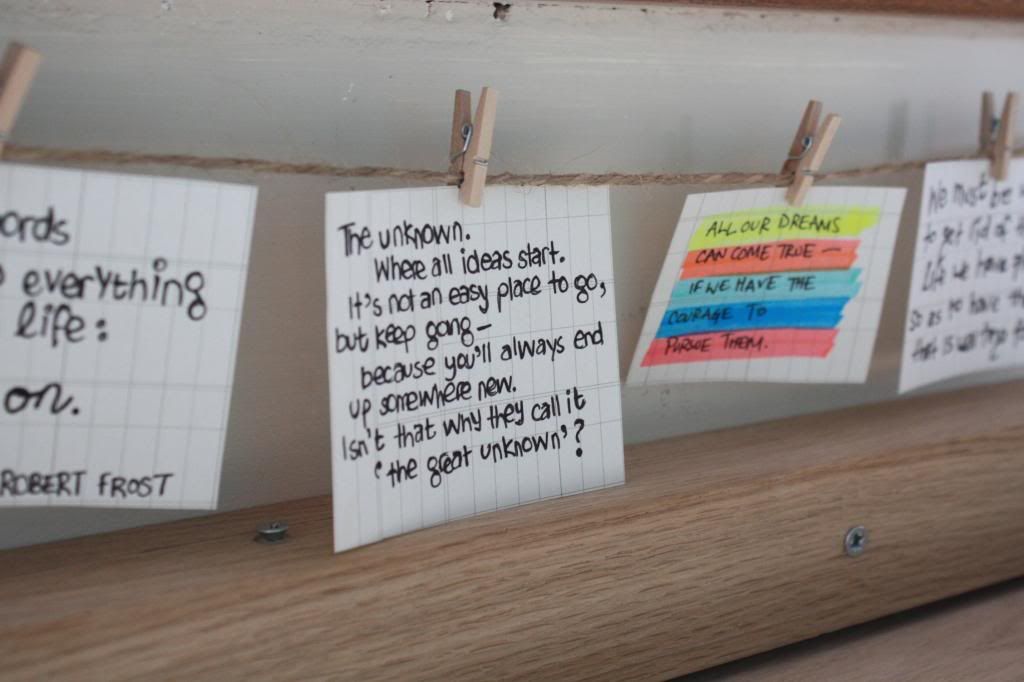 ords
everything
life:
on.
ROBERT FROST
The unknown.
Where all ideas start.
It's not an easy place to go,
but keep gong—
because you'll always end
up somewhere new.
Isn't that why they call it
'the great unknown'?
ALL OUR DREAMS
CAN COME TRUE —
IF WE HAVE THE
COURAGE TO
PURSUE THEM.
We must be
to get rid of
life we have
so as to have
that is